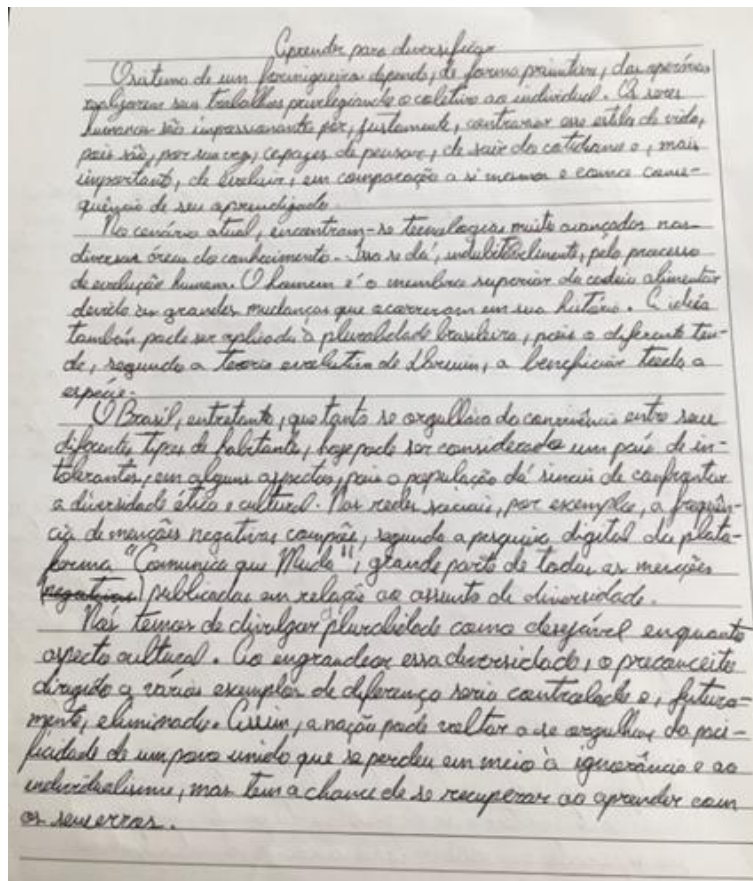 Aprender para diversificar
O sistema de um formigueiro depende, de forma primitiva, das operárias
realizarem seus trabalhos privilegiando o coletivo ao individual. Os seres
humanos são impressionantes por, justamente, contrariar esse estilo de vida,
pois são, por sua vez, capazes de pensar, de sair do cotidiano e, mais
importante, de evoluir, em comparação a si mesmos e como conse-
quência de seu aprendizado.
No cenário atual, encontram-se tecnologias muito avançadas nas
diversas áreas do conhecimento. Isso se dá, indubitavelmente, pelo processo
de evolução humana. O homem é o membro superior da cadeia alimentar
devido às grandes mudanças que ocorreram em sua história. A ideia
também pode ser aplicada à pluralidade brasileira, pois o diferente ten-
de, segundo a teoria evolutiva de Darwin, a beneficiar toda a
espécie.
O Brasil, entretanto, que tanto se orgulhava da convivência entre seus
diferentes tipos de habitante, hoje pode ser considerado um país de in-
tolerantes, em alguns aspectos, pois a população dá sinais de confrontar
a diversidade ética e cultural. Nas redes sociais, por exemplo, a frequên-
cia de menções negativas compõe, segundo a pesquisa digital da plata-
forma "Comunica que Muda", grande parte de todas as menções
(negativas) publicadas em relação ao assunto de diversidade.
Nós temos de divulgar pluralidade como desejável enquanto
aspecto cultural. Ao engrandecer essa diversidade, o preconceito
dirigido a vários exemplos de diferença seria controlado e, futura-
mente, eliminado. Assim, a nação pode voltar a se orgulhar da paci-
ficidade de um povo unido que se perdeu em meio à ignorância e ao
individualismo, mas tem a chance de se recuperar ao aprender com
os seus erros.